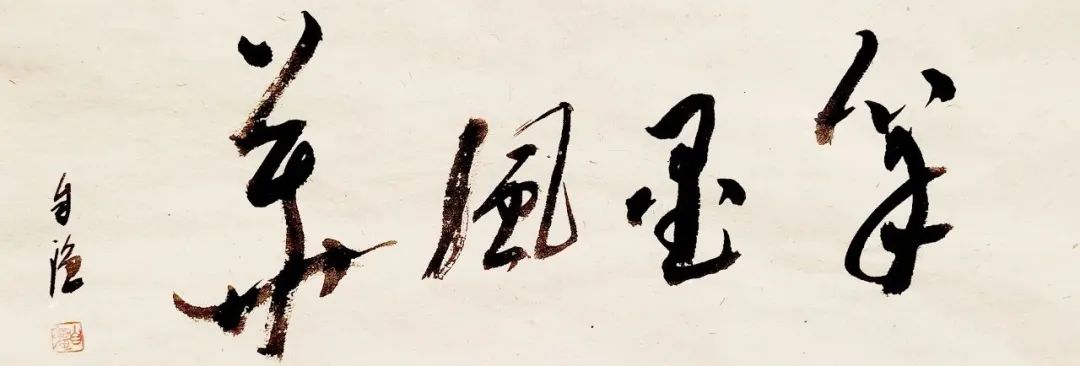 墨風華
自隐